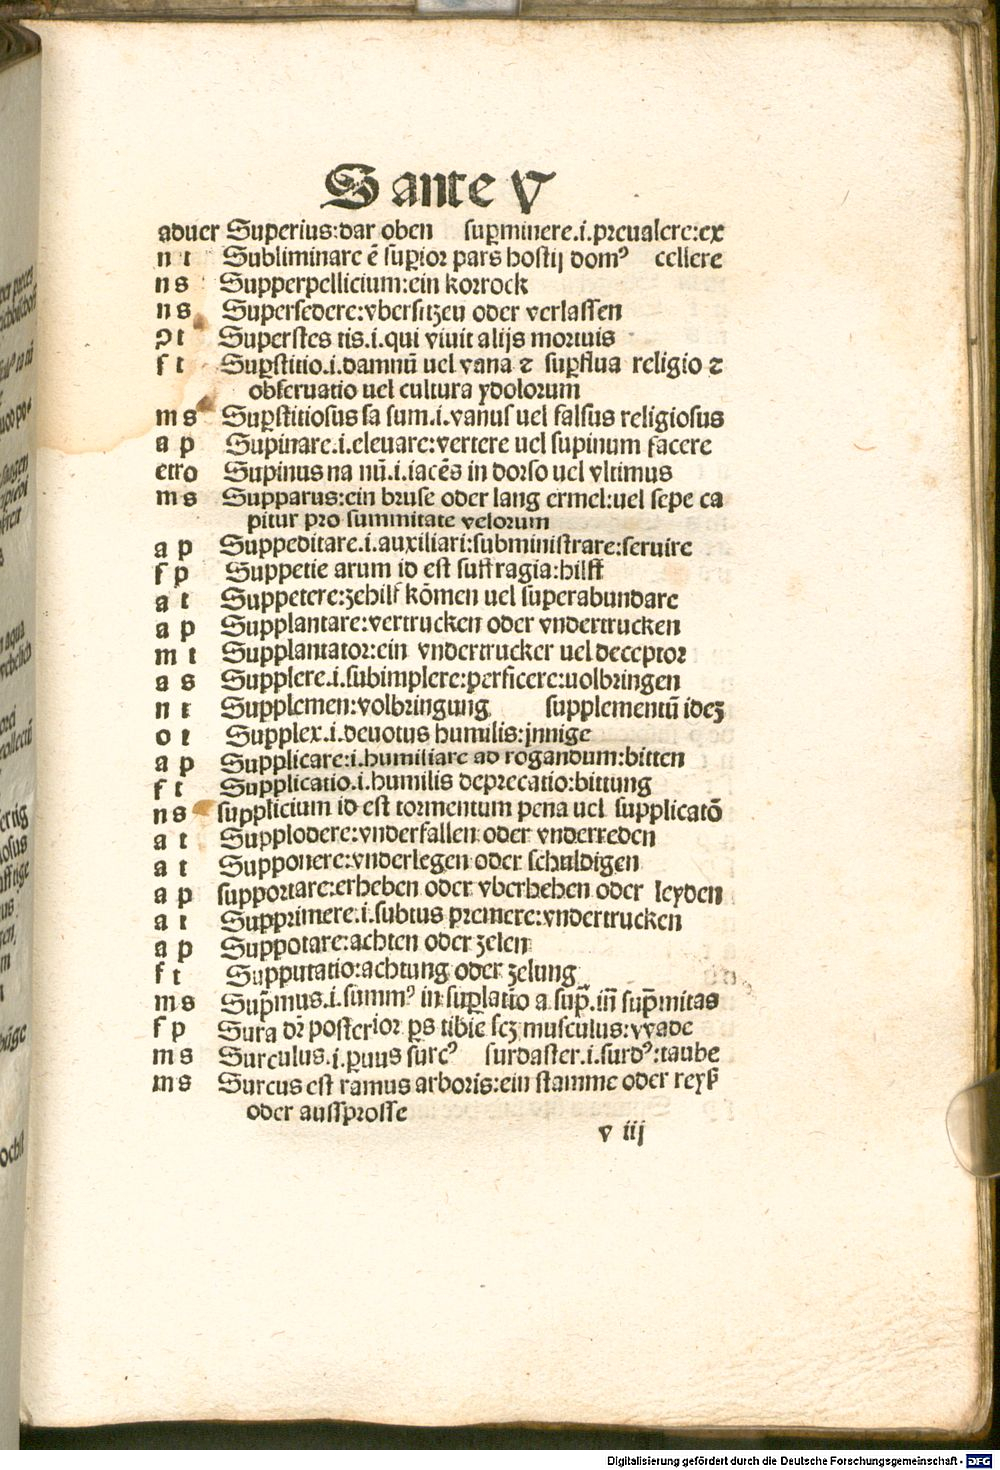 S ante V
aduer Superius:dar oben suꝑminere.i.preualere:ex
n t Subliminare ē suꝑior pars hostij domꝰ cellere
n s Supperpellicium:ein korrock
n s Supersedere:vbersitzen oder verlassen
ꝯ t Superstes tis.i.qui viuit alijs mortuis
f t Suꝑstitio.i.damnū uel vana ⁊ suꝑflua religio ⁊
obseruatio uel cultura ydolorum
m s Suꝑstitiosus sa sum.i.vanus uel falsus religiosus
a p Supinare.i.eleuare:vertere uel supinum facere
etro Supinus na nū.i.iacēs in dorso uel vltimus
m s Supparus:ein bruse oder lang ermel:uel sepe ca
pitur pro summitate velorum
a p Suppeditare.i.auxiliari:subministrare:seruire
f p Suppetie arum id est suffragia:hilff
a t Suppetere:zehilf kōmen uel superabundare
a p Supplantare:vertrucken oder vndertrucken
m t Supplantator:ein vndertrucker uel deceptor
a s Supplere.i.subimplere:perficere:uolbringen
n t Supplemen:volbringung supplementū ideꝫ
o t Supplex.i.deuotus humilis:jnnige
a p Supplicare:i.humiliare ad rogandum:bitten
f t Supplicatio.i.humilis deprecatio:bittung
n s supplicium id est tormentum pena uel supplicatō
a t Supplodere:vnderfallen oder vnderreden
a t Supponere:vnderlegen oder schuldigen
a p supportare:erheben oder vberheben oder leyden
a t Supprimere.i.subtus premere:vndertrucken
a p Suppotare:achten oder zelen
f t Supputatio:achtung oder zelung
m s Sup̄mus.i.summꝰ in suꝑlatio a sup̄.in̄ sup̄mitas
f p Sura dr̄ posterior ꝑs tibie scꝫ musculus:wade
m s Surculus.i.ꝑuus surcꝰ surdaster.i.surdꝰ:taube
m s Surcus est ramus arboris:ein stamme oder reyß
oder aussprosse
v iij
Digitalisierung gefördert durch die Deutsche Forschungsgemeinschaft - DFG